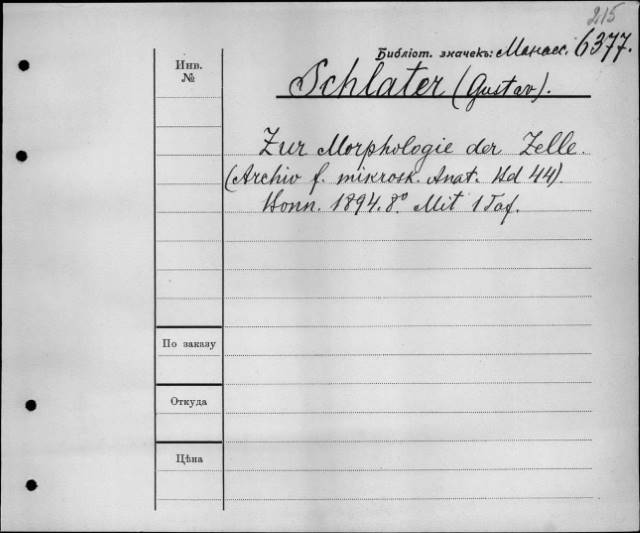 215
Библіот. значекъ: Манасс. 6377.
Инв.
№
Schlater (Gustav).
Zur Morphologie der Zelle.
(Archiv f. mikrosk. Anat. Bd 44).
Bonn. 1894. 8º Mit 1 Taf.
По заказу
Откуда
Цѣна